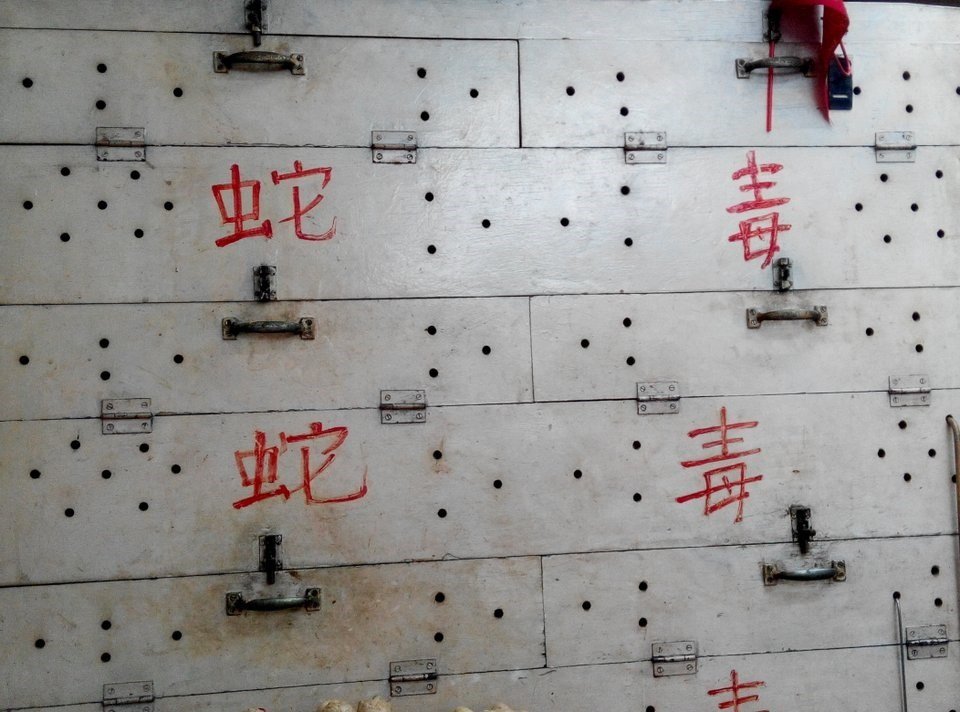 毒蛇
毒蛇